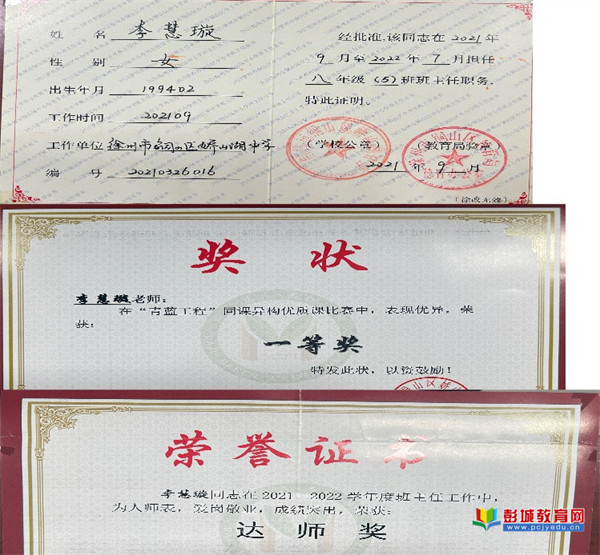 姓 名 李慧璇
性 别 女
出生年月 199402
工作时间 202109
工作单位 徐州市铜山区娇山湖中学
编 号 20210326016
经批准,该同志在2021年
9月至2022年7月担任
八年级(5)班班主任职务,
特此证明。
(学校公章) (教育局验章)
2021年9月
(涂改无效)
奖状
李慧璇老师:
在“青蓝工程”同课异构优质课比赛中,表现优异,荣
获:
一等奖
特发此状,以资鼓励!
荣誉证书
李慧璇同志在2021-2022学年度班主任工作中,
为人师表,爱岗敬业,成绩突出,荣获:
达师奖
彭城教育网
www.pcjyedu.cn